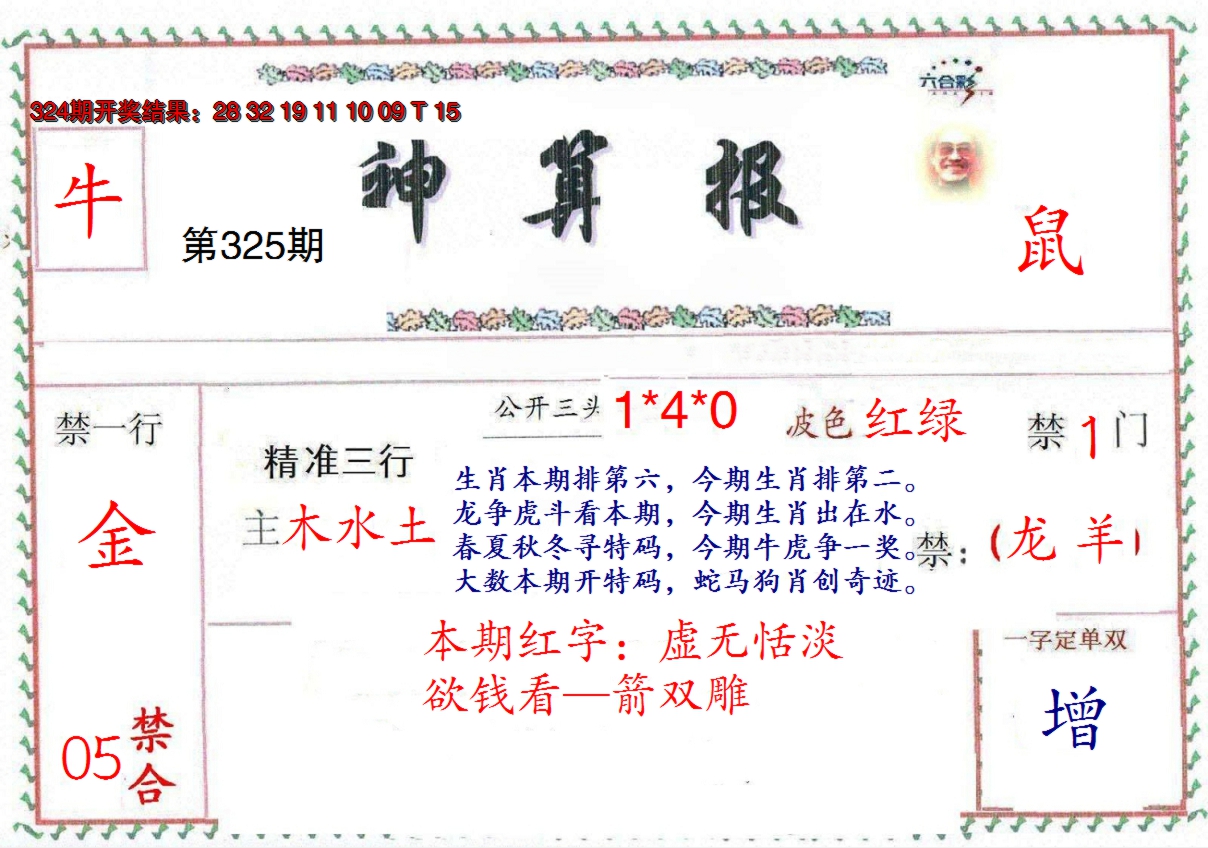 六合彩
324期开奖结果：28 32 19 11 10 09 T 15
神算报
牛
第325期
鼠
公开三头 1*4*0
波色 红绿
禁一行
禁 1 门
精准三行
生肖本期排第六，今期生肖排第二。
金
主木水土
龙争虎斗看本期，今期生肖出在水。
春夏秋冬寻特码，今期牛虎争一奖。
禁：（龙 羊）
大数本期开特码，蛇马狗肖创奇迹。
本期红字：虚无恬淡
一字定单双
欲钱看—箭双雕
增
05 禁合